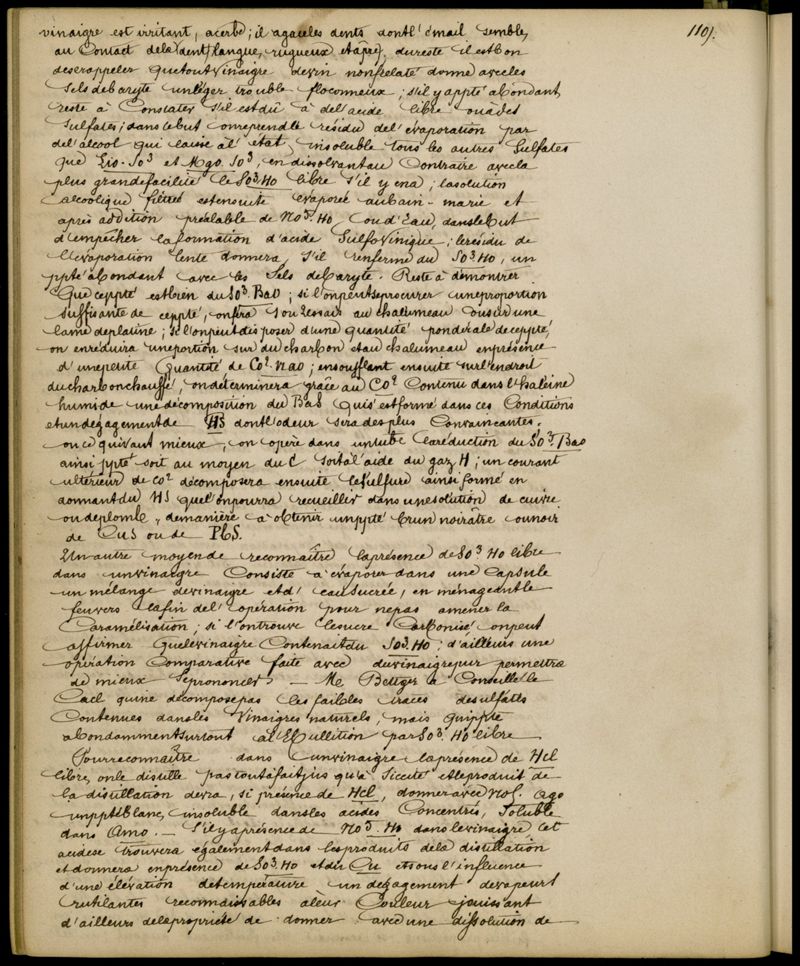 1109.
vinaigre est irritant, acerbe; il agace les dents dont l'émail semble,
au Contact de la (dent) langue, rugueux et âpre), du reste il est bon
de se rappeler que tout vinaigre de vin non frelaté donne avec les
Sels de baryte un léger trouble floconneux; s'il y a ppté abondant,
reste à Constater s'il est dû à de l'acide libre ou à des
Sulfates; dans ce but on reprend le résidu de l'évaporation par
de l'alcool qui laisse à l'état insoluble tous les autres Sulfates
que Zno. So3 et Mgo. So3, en dissolvant au Contraire avec la
plus grande facilité le So3. Ho libre s'il y en a; la solution
alcoolique filtrée est ensuite évaporée au bain-marie et
après addition préalable de No5. Ho, ou d'Eau, dans le but
d'empêcher la formation d'acide Sulfovinique; le résidu de
l'évaporation lente donnera, s'il renferme du So3 Ho, un
ppté abondant avec les Sels de baryte. Reste à démontrer
que ce ppté est bien du So3. Bao; si l'on peut se procurer une proportion
suffisante de ce ppté, on fera 1 ou 2 essais au chalumeau ou sur une
lame de platine; si l'on peut disposer d'une quantité pondérale de ce ppté,
on en réduira une portion sur du charbon et au chalumeau en présence
d'une petite quantité de Co2. nao; en soufflant ensuite sur l'endroit
du charbon chauffé, on déterminera grâce au Co2 Contenu dans l'haleine
humide une décomposition du BaS qui s'est formé dans ces Conditions
et un dégagement de HS dont l'odeur sera des plus Convaincantes.
ou ce qui vaut mieux, on opère dans un tube la réduction du So3. Bao
ainsi ppté soit au moyen du C soit à l'aide du gaz H; un courant
ultérieur de co2 décomposera ensuite le sulfure ainsi formé en
donnant du HS que l'on pourra recueillir dans une solution de cuivre
ou de plomb, de manière à obtenir un ppté brun noirâtre ou noir
de CuS ou de PbS.
Un autre moyen de reconnaître la présence de So3 Ho libre
dans un vinaigre Consiste à évaporer dans une Capsule
un mélange de vinaigre et d'eau sucrée, en ménageant le
feu vers la fin de l'opération pour ne pas amener la
Caramélisation; si l'on trouve le sucre Carbonisé on peut
affirmer que le vinaigre Contenait du So3. Ho; d'ailleurs une
opération Comparative faite avec du vinaigre pur permettra
de mieux se prononcer. — Mr Bettger a Conseillé le
Cacl qui ne décompose pas les faibles traces de sulfates
Contenues dans les Vinaigres naturels, mais qui ppte
abondamment surtout à l'Ebullition par So3. Ho libre
Pour reconnaître dans un vinaigre la présence de Hcl
libre, on le distille pas tout à fait jusqu'à Siccité et le produit de
la distillation devra, si présence de Hcl, donner avec No5. Ago
un ppté blanc, insoluble dans les acides Concentrés, Soluble
dans Amo. — S'il y a présence de No5. Ho dans le vinaigre, Cet
acide se trouvera également dans les produits de la distillation
et donnera en présence de So3. Ho et du Cu et sous l'influence
d'une élévation de température un dégagement de vapeurs
rutilantes reconnaissables à leur Couleur jouissant
d'ailleurs de la propriété de donner avec une dissolution de